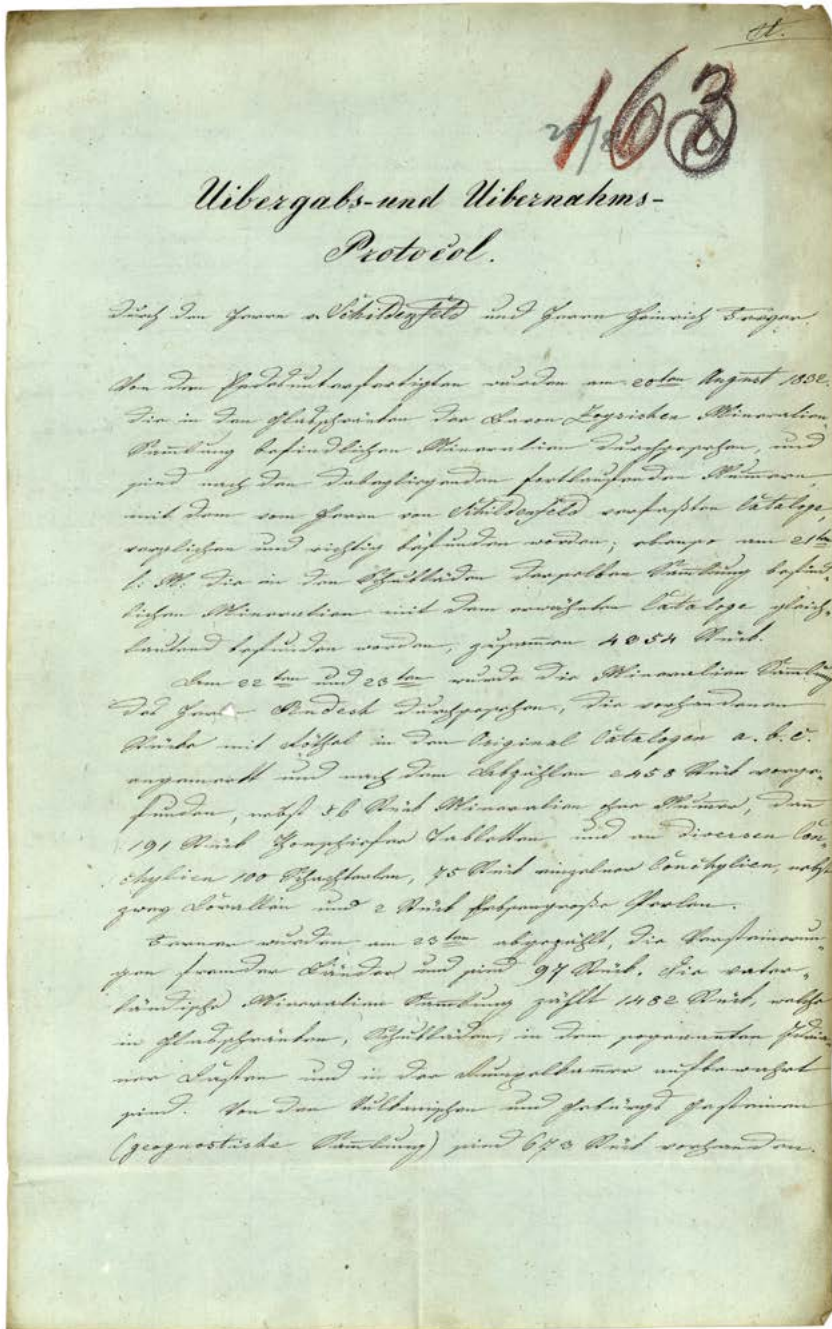 A.
163
20/8
Uibergabs- und Uibernahms-
Protocol.
durch den Herrn v. Schildenfeld und Herrn Heinrich Freyer.
Von den Endesunterfertigten wurden am 20ten August 1832.
die in den Glasschränken der Baron Zoysischen Mineralien
Sammlung befindlichen Mineralien durchgesehen, und
sind nach den dabeyliegenden fortlaufenden Nummern,
mit dem vom Herrn von Schildenfeld verfaßten Cataloge,
verglichen und richtig befunden worden; ebenso am 21ten
l: M: die in den Schubläden derselben Sammlung befind-
lichen Mineralien mit dem erwähnten Cataloge gleich-
lautend befunden worden, zusammen 4354 Stück.
Am 22ten und 23ten wurde die Mineralien Sammlung
des Herrn durchgesehen, die vorhandenen
Stücke mit Röthel in den Original Catalogen a. b. c.
angemerkt und nach dem Abzählen 2458 Stück vorge-
funden, nebst 56 Stück Mineralien ohne Nummer, dann
191 Stück Thonschiefer Tabletten und an diversen Con-
chylien 100 Schachterln, 75 Stück einzelner Conchylien, nebst
zwey Corallen und 2 Stück Erbsengroße Perlen.
Ferner wurden am 23ten abgezählt, die Versteinerun-
gen fremder Länder und sind 97 Stück. Die vater-
ländische Mineralien Sammlung zählt 1482 Stück, welche
in Glasschränken, Schubläden, in dem sogenannten Idria-
ner Kasten und in der Rumpelkammer aufbewahrt
sind. Von den Vulkanischen und Gebürgs Gesteinen
(geognostische Sammlung) sind 673 Stück vorhanden.